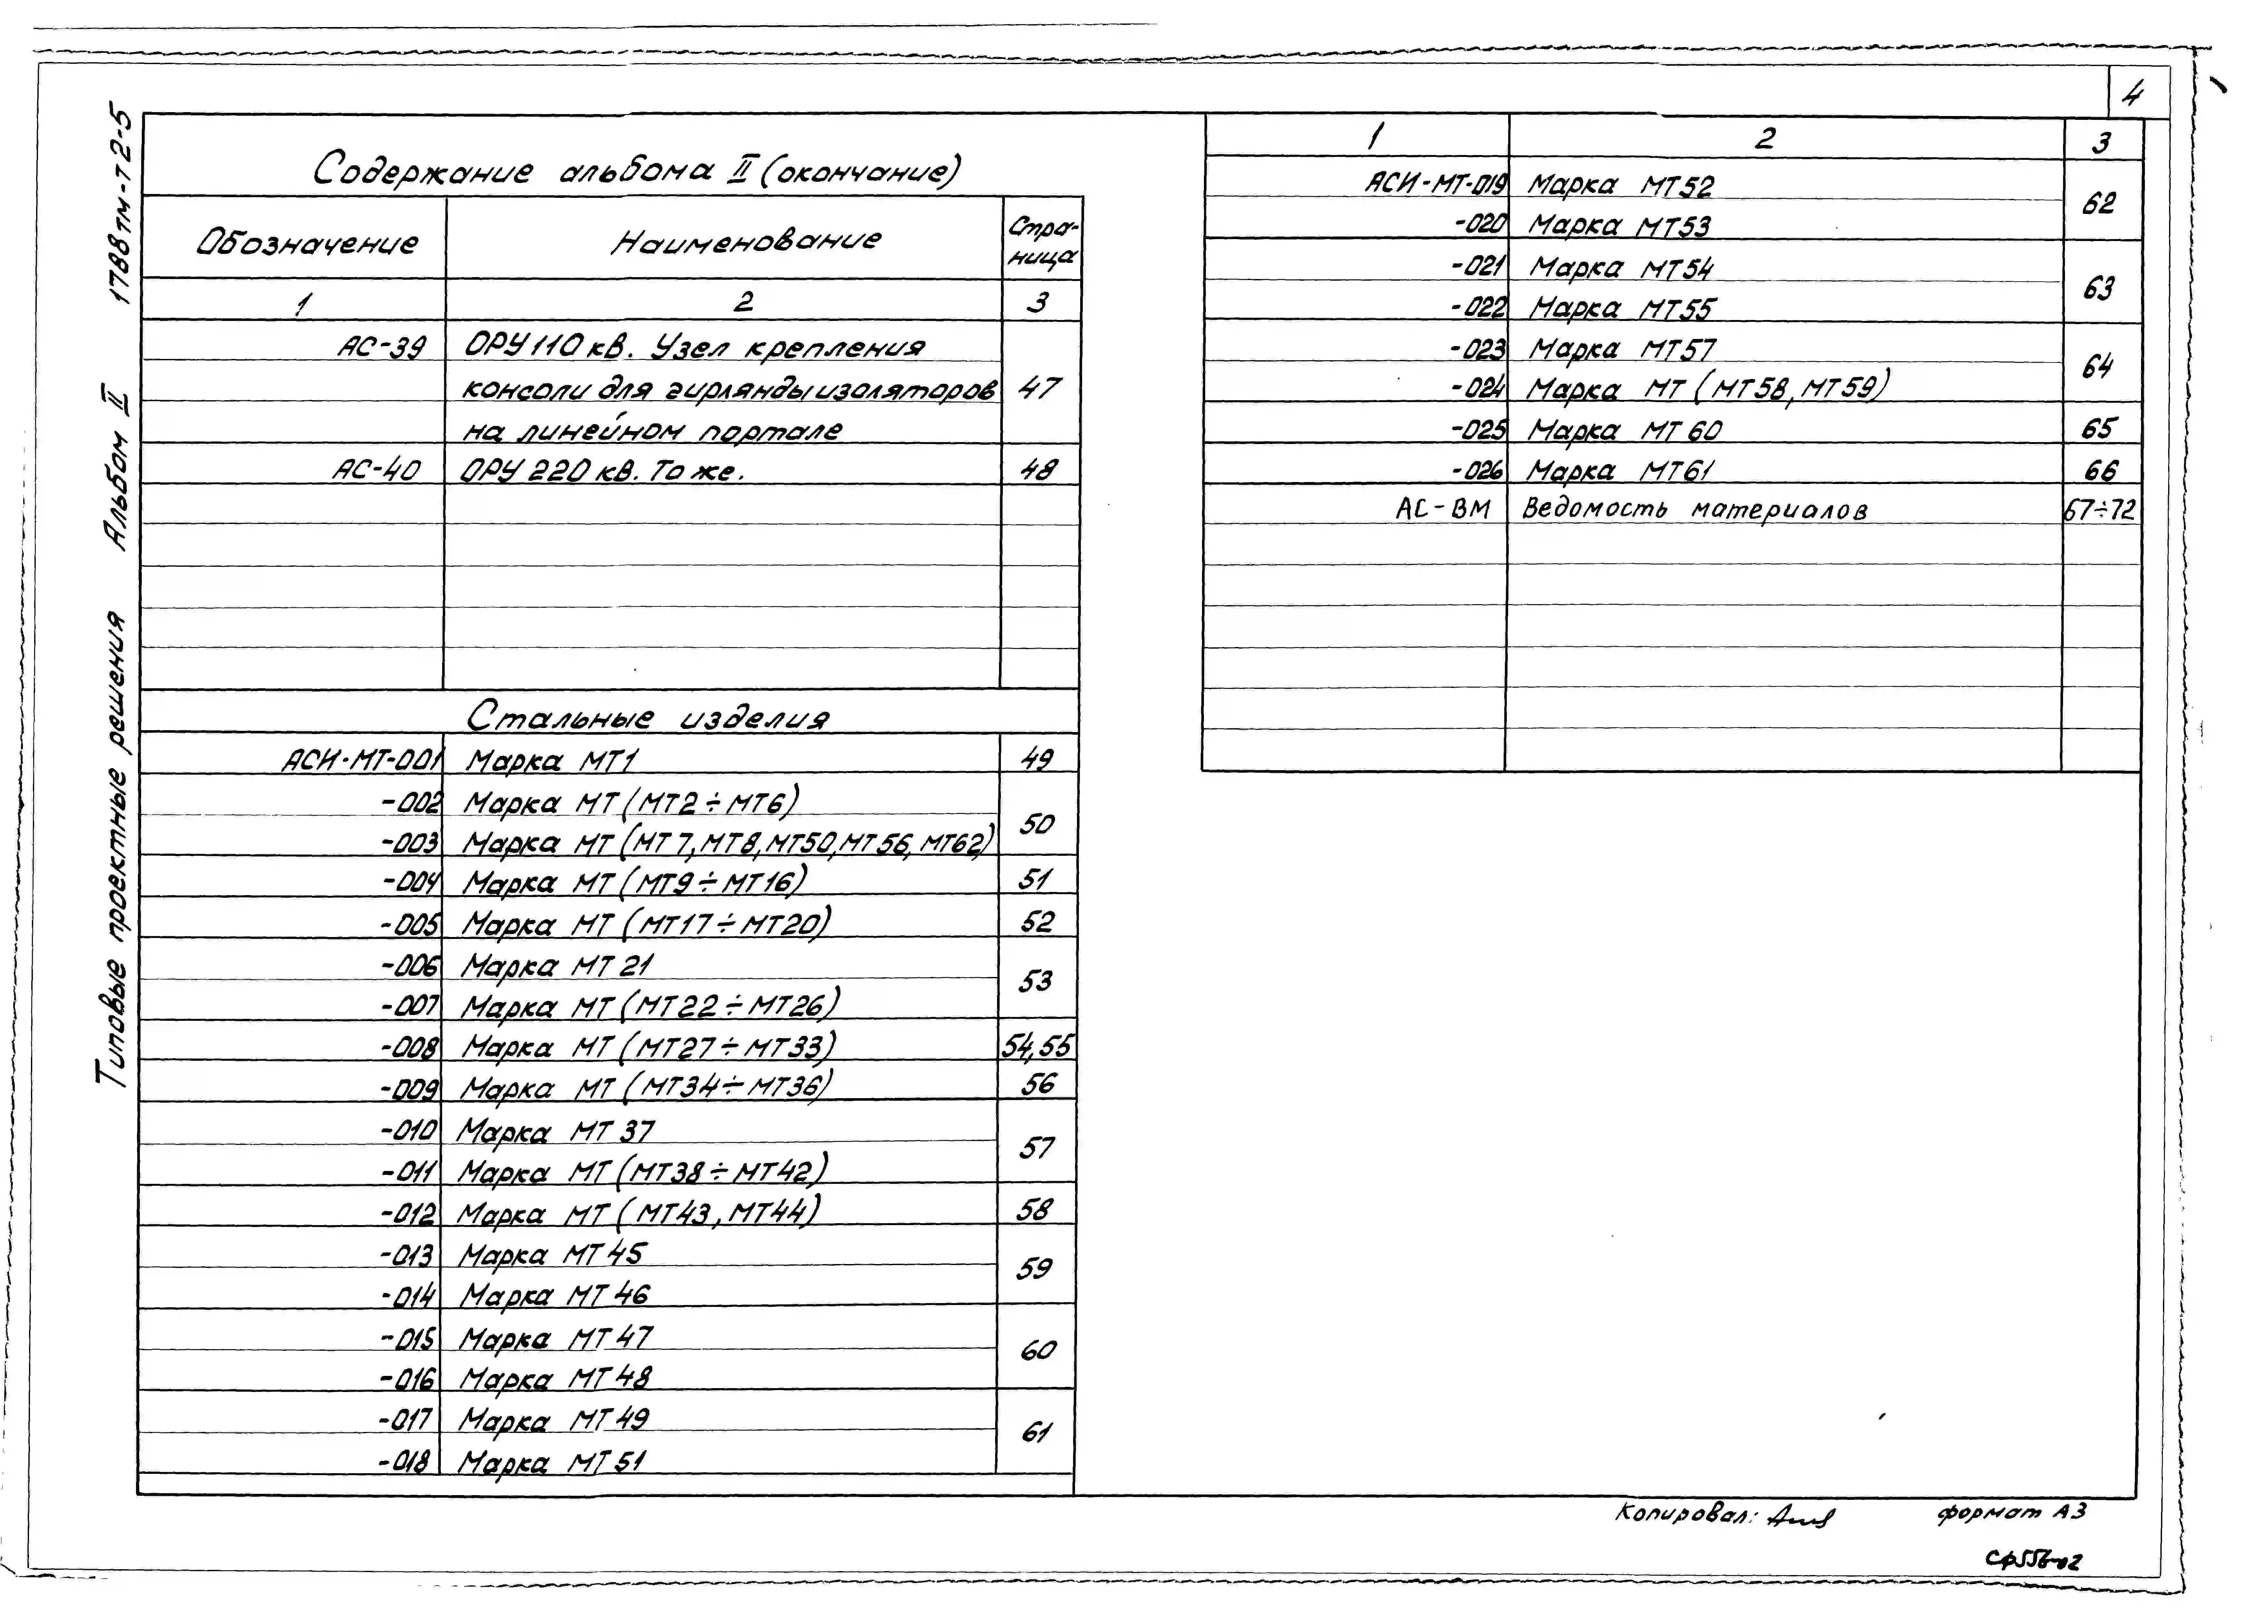 4
Типовые проектные решения Альбом II 1788тм-т2-5
Содержание альбома II (окончание)
Обозначение Наименование Стра-
ница
1 2 3
АС-39 ОРУ 110 кВ. Узел крепления
консоли для гирлянды изоляторов 47
на линейном портале
АС-40 ОРУ 220 кВ. То же. 48
Стальные изделия
АСИ-МТ-001 Марка МТ1 49
-002 Марка МТ (МТ2÷МТ6) 50
-003 Марка МТ (МТ7, МТ8, МТ50, МТ56, МТ62)
-004 Марка МТ (МТ9÷МТ16) 51
-005 Марка МТ (МТ17÷МТ20) 52
-006 Марка МТ 21 53
-007 Марка МТ (МТ22÷МТ26)
-008 Марка МТ (МТ27÷МТ33) 54,55
-009 Марка МТ (МТ34÷МТ36) 56
-010 Марка МТ 37 57
-011 Марка МТ (МТ38÷МТ42)
-012 Марка МТ (МТ43, МТ44) 58
-013 Марка МТ 45 59
-014 Марка МТ 46
-015 Марка МТ 47 60
-016 Марка МТ 48
-017 Марка МТ 49 61
-018 Марка МТ 51
1 2 3
АСИ-МТ-019 Марка МТ52 62
-020 Марка МТ53
-021 Марка МТ54 63
-022 Марка МТ55
-023 Марка МТ57 64
-024 Марка МТ (МТ58, МТ59)
-025 Марка МТ 60 65
-026 Марка МТ61 66
АС-ВМ Ведомость материалов 67÷72
Копировал: формат А3